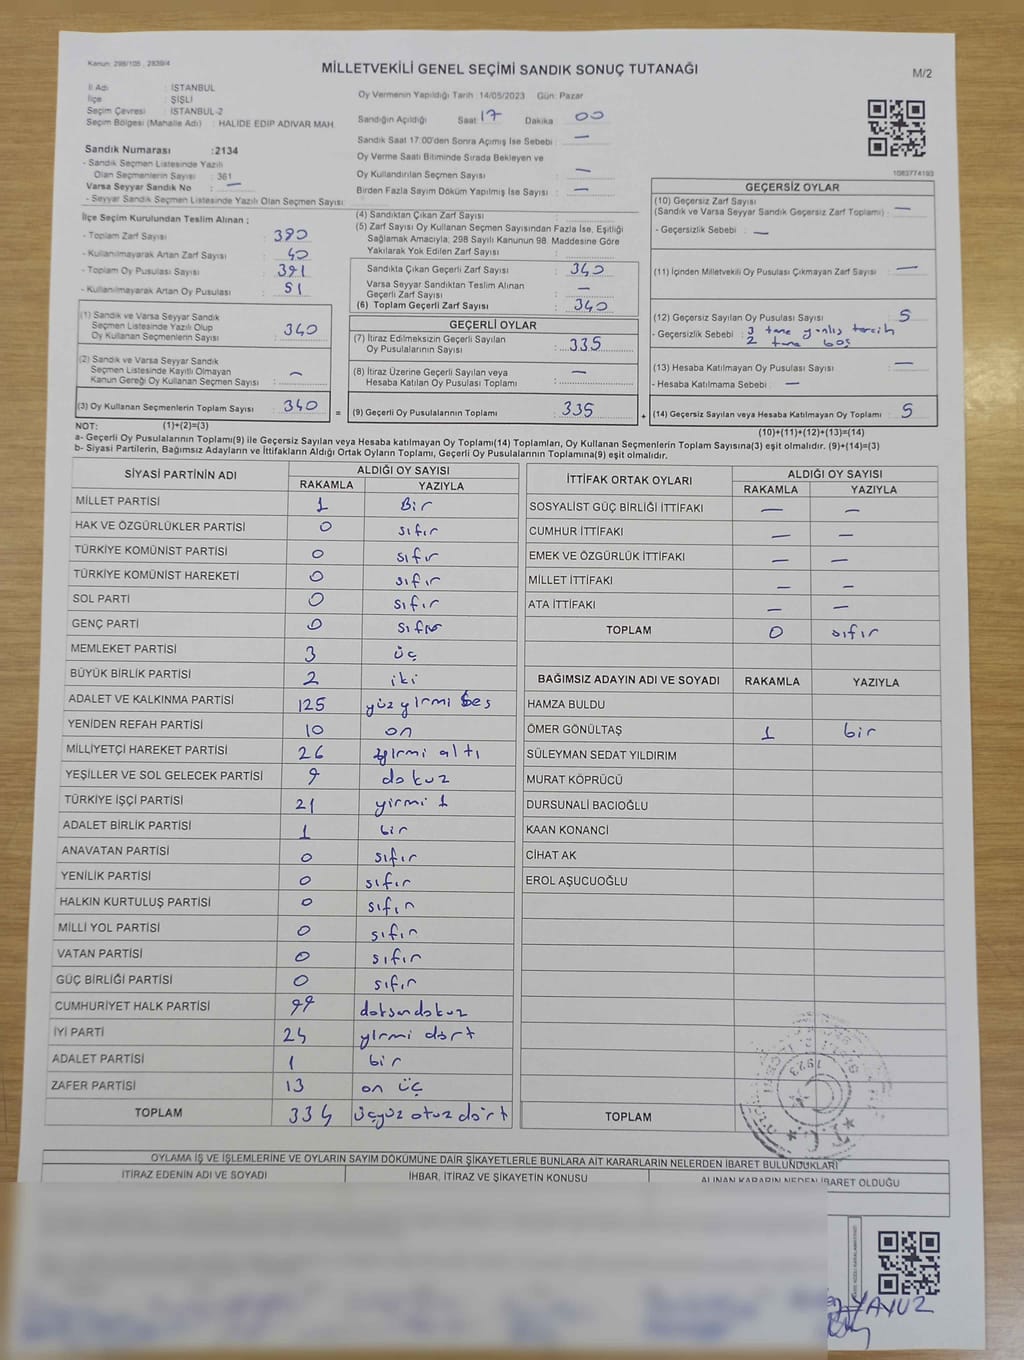 Kanun: 298/105 , 2839/4
MİLLETVEKİLİ GENEL SEÇİMİ SANDIK SONUÇ TUTANAĞI
M/2
İl Adı : İSTANBUL
İlçe : ŞİŞLİ
Seçim Çevresi : İSTANBUL-2
Seçim Bölgesi (Mahalle Adı) : HALİDE EDİP ADIVAR MAH.
Sandık Numarası :2134
- Sandık Seçmen Listesinde Yazılı
Olan Seçmenlerin Sayısı : 361
Varsa Seyyar Sandık No : —
- Seyyar Sandık Seçmen Listesinde Yazılı Olan Seçmen Sayısı:
Oy Vermenin Yapıldığı Tarih :14/05/2023 Gün: Pazar
Sandığın Açıldığı Saat 17 Dakika 00
Sandık Saat 17:00'den Sonra Açılmış İse Sebebi : —
Oy Verme Saati Bitiminde Sırada Bekleyen ve
Oy Kullandırılan Seçmen Sayısı : —
Birden Fazla Sayım Döküm Yapılmış İse Sayısı : —
1083774193
İlçe Seçim Kurulundan Teslim Alınan ;
- Toplam Zarf Sayısı : 380
- Kullanılmayarak Artan Zarf Sayısı : 40
- Toplam Oy Pusulası Sayısı : 391
- Kullanılmayarak Artan Oy Pusulası : 51
(1) Sandık ve Varsa Seyyar Sandık
Seçmen Listesinde Yazılı Olup
Oy Kullanan Seçmenlerin Sayısı : 340
(2) Sandık ve Varsa Seyyar Sandık
Seçmen Listesinde Kayıtlı Olmayan
Kanun Gereği Oy Kullanan Seçmen Sayısı : —
(3) Oy Kullanan Seçmenlerin Toplam Sayısı : 340
(4) Sandıktan Çıkan Zarf Sayısı :
(5) Zarf Sayısı Oy Kullanan Seçmen Sayısından Fazla İse, Eşitliği
Sağlamak Amacıyla; 298 Sayılı Kanunun 98. Maddesine Göre
Yakılarak Yok Edilen Zarf Sayısı :
Sandıkta Çıkan Geçerli Zarf Sayısı : 340
Varsa Seyyar Sandıktan Teslim Alınan
Geçerli Zarf Sayısı : —
(6) Toplam Geçerli Zarf Sayısı : 340
GEÇERLİ OYLAR
(7) İtiraz Edilmeksizin Geçerli Sayılan
Oy Pusulalarının Sayısı : 335
(8) İtiraz Üzerine Geçerli Sayılan veya
Hesaba Katılan Oy Pusulası Toplamı : —
= (9) Geçerli Oy Pusulalarının Toplamı : 335
GEÇERSİZ OYLAR
(10) Geçersiz Zarf Sayısı
(Sandık ve Varsa Seyyar Sandık Geçersiz Zarf Toplamı) : —
- Geçersizlik Sebebi : —
(11) İçinden Milletvekili Oy Pusulası Çıkmayan Zarf Sayısı : —
(12) Geçersiz Sayılan Oy Pusulası Sayısı : 5
- Geçersizlik Sebebi : 3 tane yanlış tercih
2 tane boş
(13) Hesaba Katılmayan Oy Pusulası Sayısı : —
- Hesaba Katılmama Sebebi : —
+ (14) Geçersiz Sayılan veya Hesaba Katılmayan Oy Toplamı : 5
NOT: (1)+(2)=(3)
(10)+(11)+(12)+(13)=(14)
a- Geçerli Oy Pusulalarının Toplamı(9) ile Geçersiz Sayılan veya Hesaba katılmayan Oy Toplamı(14) Toplamları, Oy Kullanan Seçmenlerin Toplam Sayısına(3) eşit olmalıdır. (9)+(14)=(3)
b- Siyasi Partilerin, Bağımsız Adayların ve İttifakların Aldığı Ortak Oyların Toplamı, Geçerli Oy Pusulalarının Toplamına(9) eşit olmalıdır.
SİYASİ PARTİNİN ADI ALDIĞI OY SAYISI
RAKAMLA YAZIYLA
MİLLET PARTİSİ 1 Bir
HAK VE ÖZGÜRLÜKLER PARTİSİ 0 sıfır
TÜRKİYE KOMÜNİST PARTİSİ 0 sıfır
TÜRKİYE KOMÜNİST HAREKETİ 0 sıfır
SOL PARTİ 0 sıfır
GENÇ PARTİ 0 sıfır
MEMLEKET PARTİSİ 3 üç
BÜYÜK BİRLİK PARTİSİ 2 iki
ADALET VE KALKINMA PARTİSİ 125 yüz yirmi beş
YENİDEN REFAH PARTİSİ 10 on
MİLLİYETÇİ HAREKET PARTİSİ 26 yirmi altı
YEŞİLLER VE SOL GELECEK PARTİSİ 9 dokuz
TÜRKİYE İŞÇİ PARTİSİ 21 yirmi 1
ADALET BİRLİK PARTİSİ 1 bir
ANAVATAN PARTİSİ 0 sıfır
YENİLİK PARTİSİ 0 sıfır
HALKIN KURTULUŞ PARTİSİ 0 sıfır
MİLLİ YOL PARTİSİ 0 sıfır
VATAN PARTİSİ 0 sıfır
GÜÇ BİRLİĞİ PARTİSİ 0 sıfır
CUMHURİYET HALK PARTİSİ 99 doksandokuz
İYİ PARTİ 24 yirmi dört
ADALET PARTİSİ 1 bir
ZAFER PARTİSİ 13 on üç
TOPLAM 334 üçyüz otuz dört
İTTİFAK ORTAK OYLARI ALDIĞI OY SAYISI
RAKAMLA YAZIYLA
SOSYALİST GÜÇ BİRLİĞİ İTTİFAKI — —
CUMHUR İTTİFAKI — —
EMEK VE ÖZGÜRLÜK İTTİFAKI — —
MİLLET İTTİFAKI — —
ATA İTTİFAKI — —
TOPLAM 0 sıfır
BAĞIMSIZ ADAYIN ADI VE SOYADI RAKAMLA YAZIYLA
HAMZA BULDU
ÖMER GÖNÜLTAŞ 1 bir
SÜLEYMAN SEDAT YILDIRIM
MURAT KÖPRÜCÜ
DURSUNALİ BACIOĞLU
KAAN KONANCİ
CİHAT AK
EROL AŞUCUOĞLU
TOPLAM
OYLAMA İŞ VE İŞLEMLERİNE VE OYLARIN SAYIM DÖKÜMÜNE DAİR ŞİKAYETLERLE BUNLARA AİT KARARLARIN NELERDEN İBARET BULUNDUKLARI
İTİRAZ EDENİN ADI VE SOYADI İHBAR, İTİRAZ VE ŞİKAYETİN KONUSU ALINAN KARARIN NEDEN İBARET OLDUĞU
YAVUZ